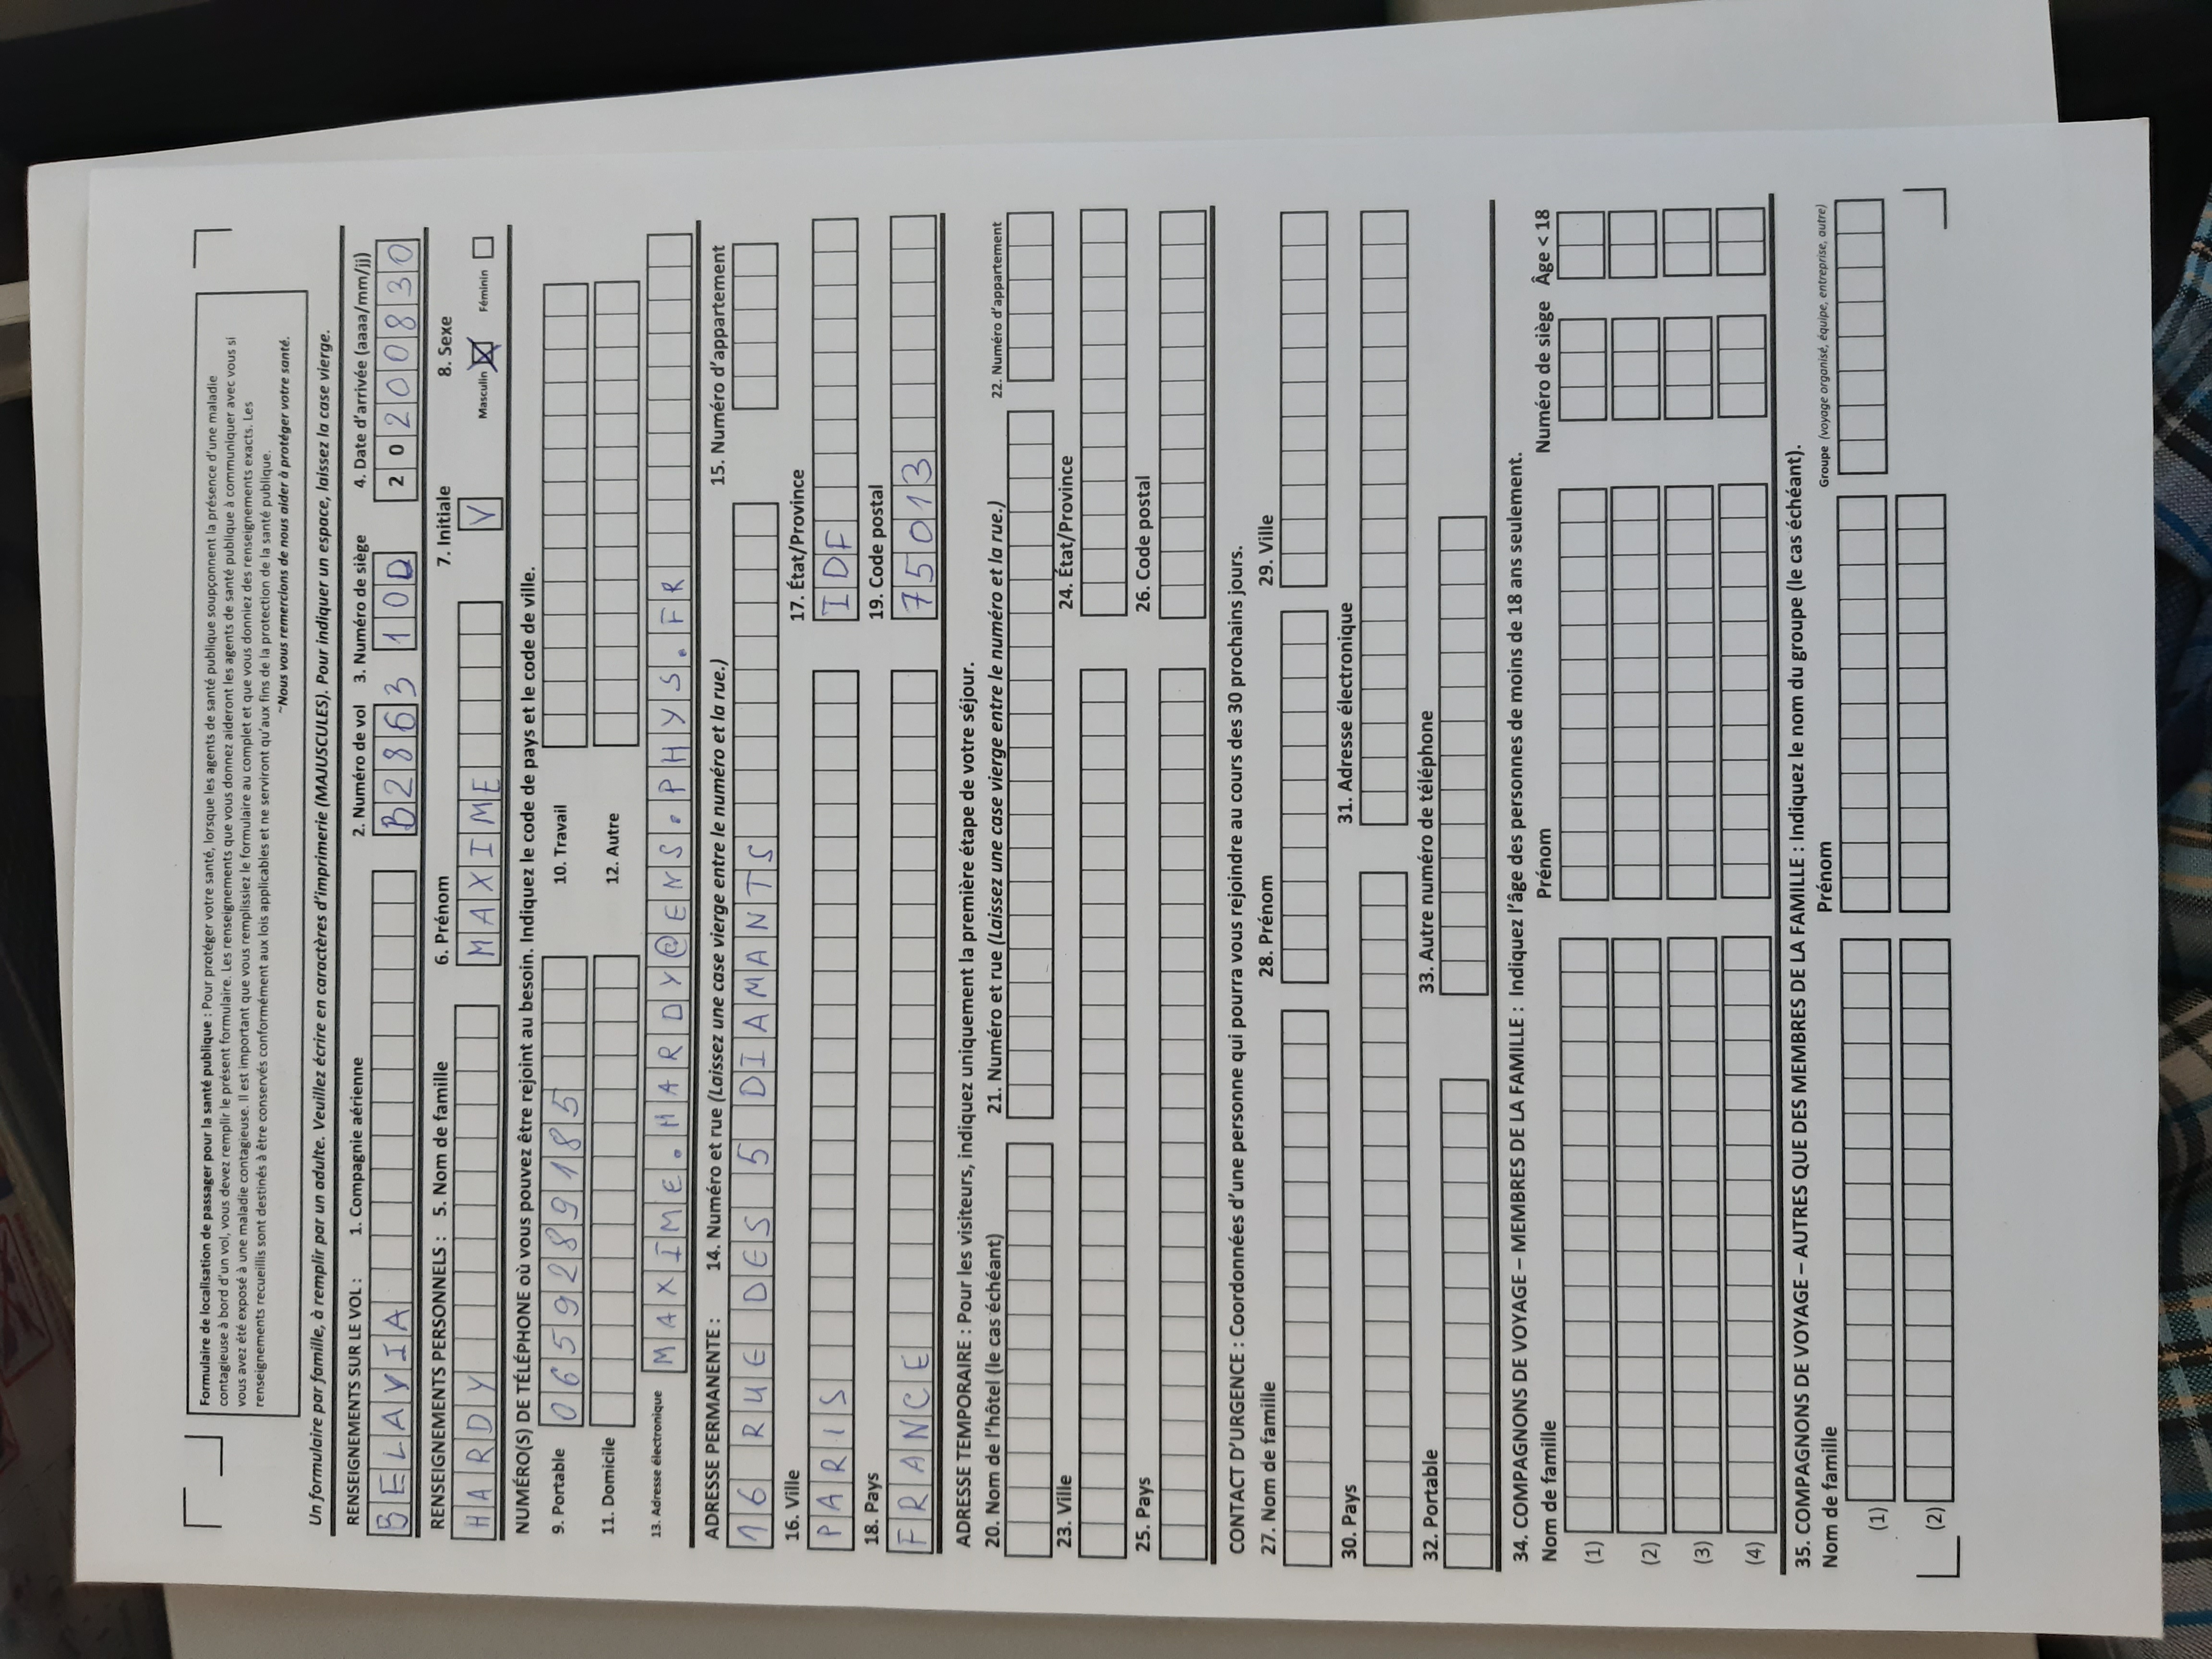 Formulaire de localisation de passager pour la santé publique : Pour protéger votre santé, lorsque les agents de santé publique soupçonnent la présence d'une maladie
contagieuse à bord d'un vol, vous devez remplir le présent formulaire. Les renseignements que vous donnez aideront les agents de santé publique à communiquer avec vous si
vous avez été exposé à une maladie contagieuse. Il est important que vous remplissiez le formulaire au complet et que vous donniez des renseignements exacts. Les
renseignements recueillis sont destinés à être conservés conformément aux lois applicables et ne serviront qu'aux fins de la protection de la santé publique.
~Nous vous remercions de nous aider à protéger votre santé.
Un formulaire par famille, à remplir par un adulte. Veuillez écrire en caractères d'imprimerie (MAJUSCULES). Pour indiquer un espace, laissez la case vierge.
RENSEIGNEMENTS SUR LE VOL : 1. Compagnie aérienne 2. Numéro de vol 3. Numéro de siège 4. Date d'arrivée (aaaa/mm/jj)
BELAVIA B2863 10D 20200830
RENSEIGNEMENTS PERSONNELS : 5. Nom de famille 6. Prénom 7. Initiale 8. Sexe
HARDY MAXIME V Masculin X Féminin
NUMÉRO(S) DE TÉLÉPHONE où vous pouvez être rejoint au besoin. Indiquez le code de pays et le code de ville.
9. Portable 0659289185 10. Travail
11. Domicile 12. Autre
13. Adresse électronique MAXIME.HARDY@ENS.PHYS.FR
ADRESSE PERMANENTE : 14. Numéro et rue (Laissez une case vierge entre le numéro et la rue.) 15. Numéro d'appartement
16 RUE DES 5 DIAMANTS
16. Ville 17. État/Province
PARIS IDF
18. Pays 19. Code postal
FRANCE 75013
ADRESSE TEMPORAIRE : Pour les visiteurs, indiquez uniquement la première étape de votre séjour.
20. Nom de l'hôtel (le cas échéant) 21. Numéro et rue (Laissez une case vierge entre le numéro et la rue.) 22. Numéro d'appartement
23. Ville 24. État/Province
25. Pays 26. Code postal
CONTACT D'URGENCE : Coordonnées d'une personne qui pourra vous rejoindre au cours des 30 prochains jours.
27. Nom de famille 28. Prénom 29. Ville
30. Pays 31. Adresse électronique
32. Portable 33. Autre numéro de téléphone
34. COMPAGNONS DE VOYAGE – MEMBRES DE LA FAMILLE : Indiquez l'âge des personnes de moins de 18 ans seulement.
Nom de famille Prénom Numéro de siège Âge < 18
(1)
(2)
(3)
(4)
35. COMPAGNONS DE VOYAGE – AUTRES QUE DES MEMBRES DE LA FAMILLE : Indiquez le nom du groupe (le cas échéant).
Nom de famille Prénom Groupe (voyage organisé, équipe, entreprise, autre)
(1)
(2)